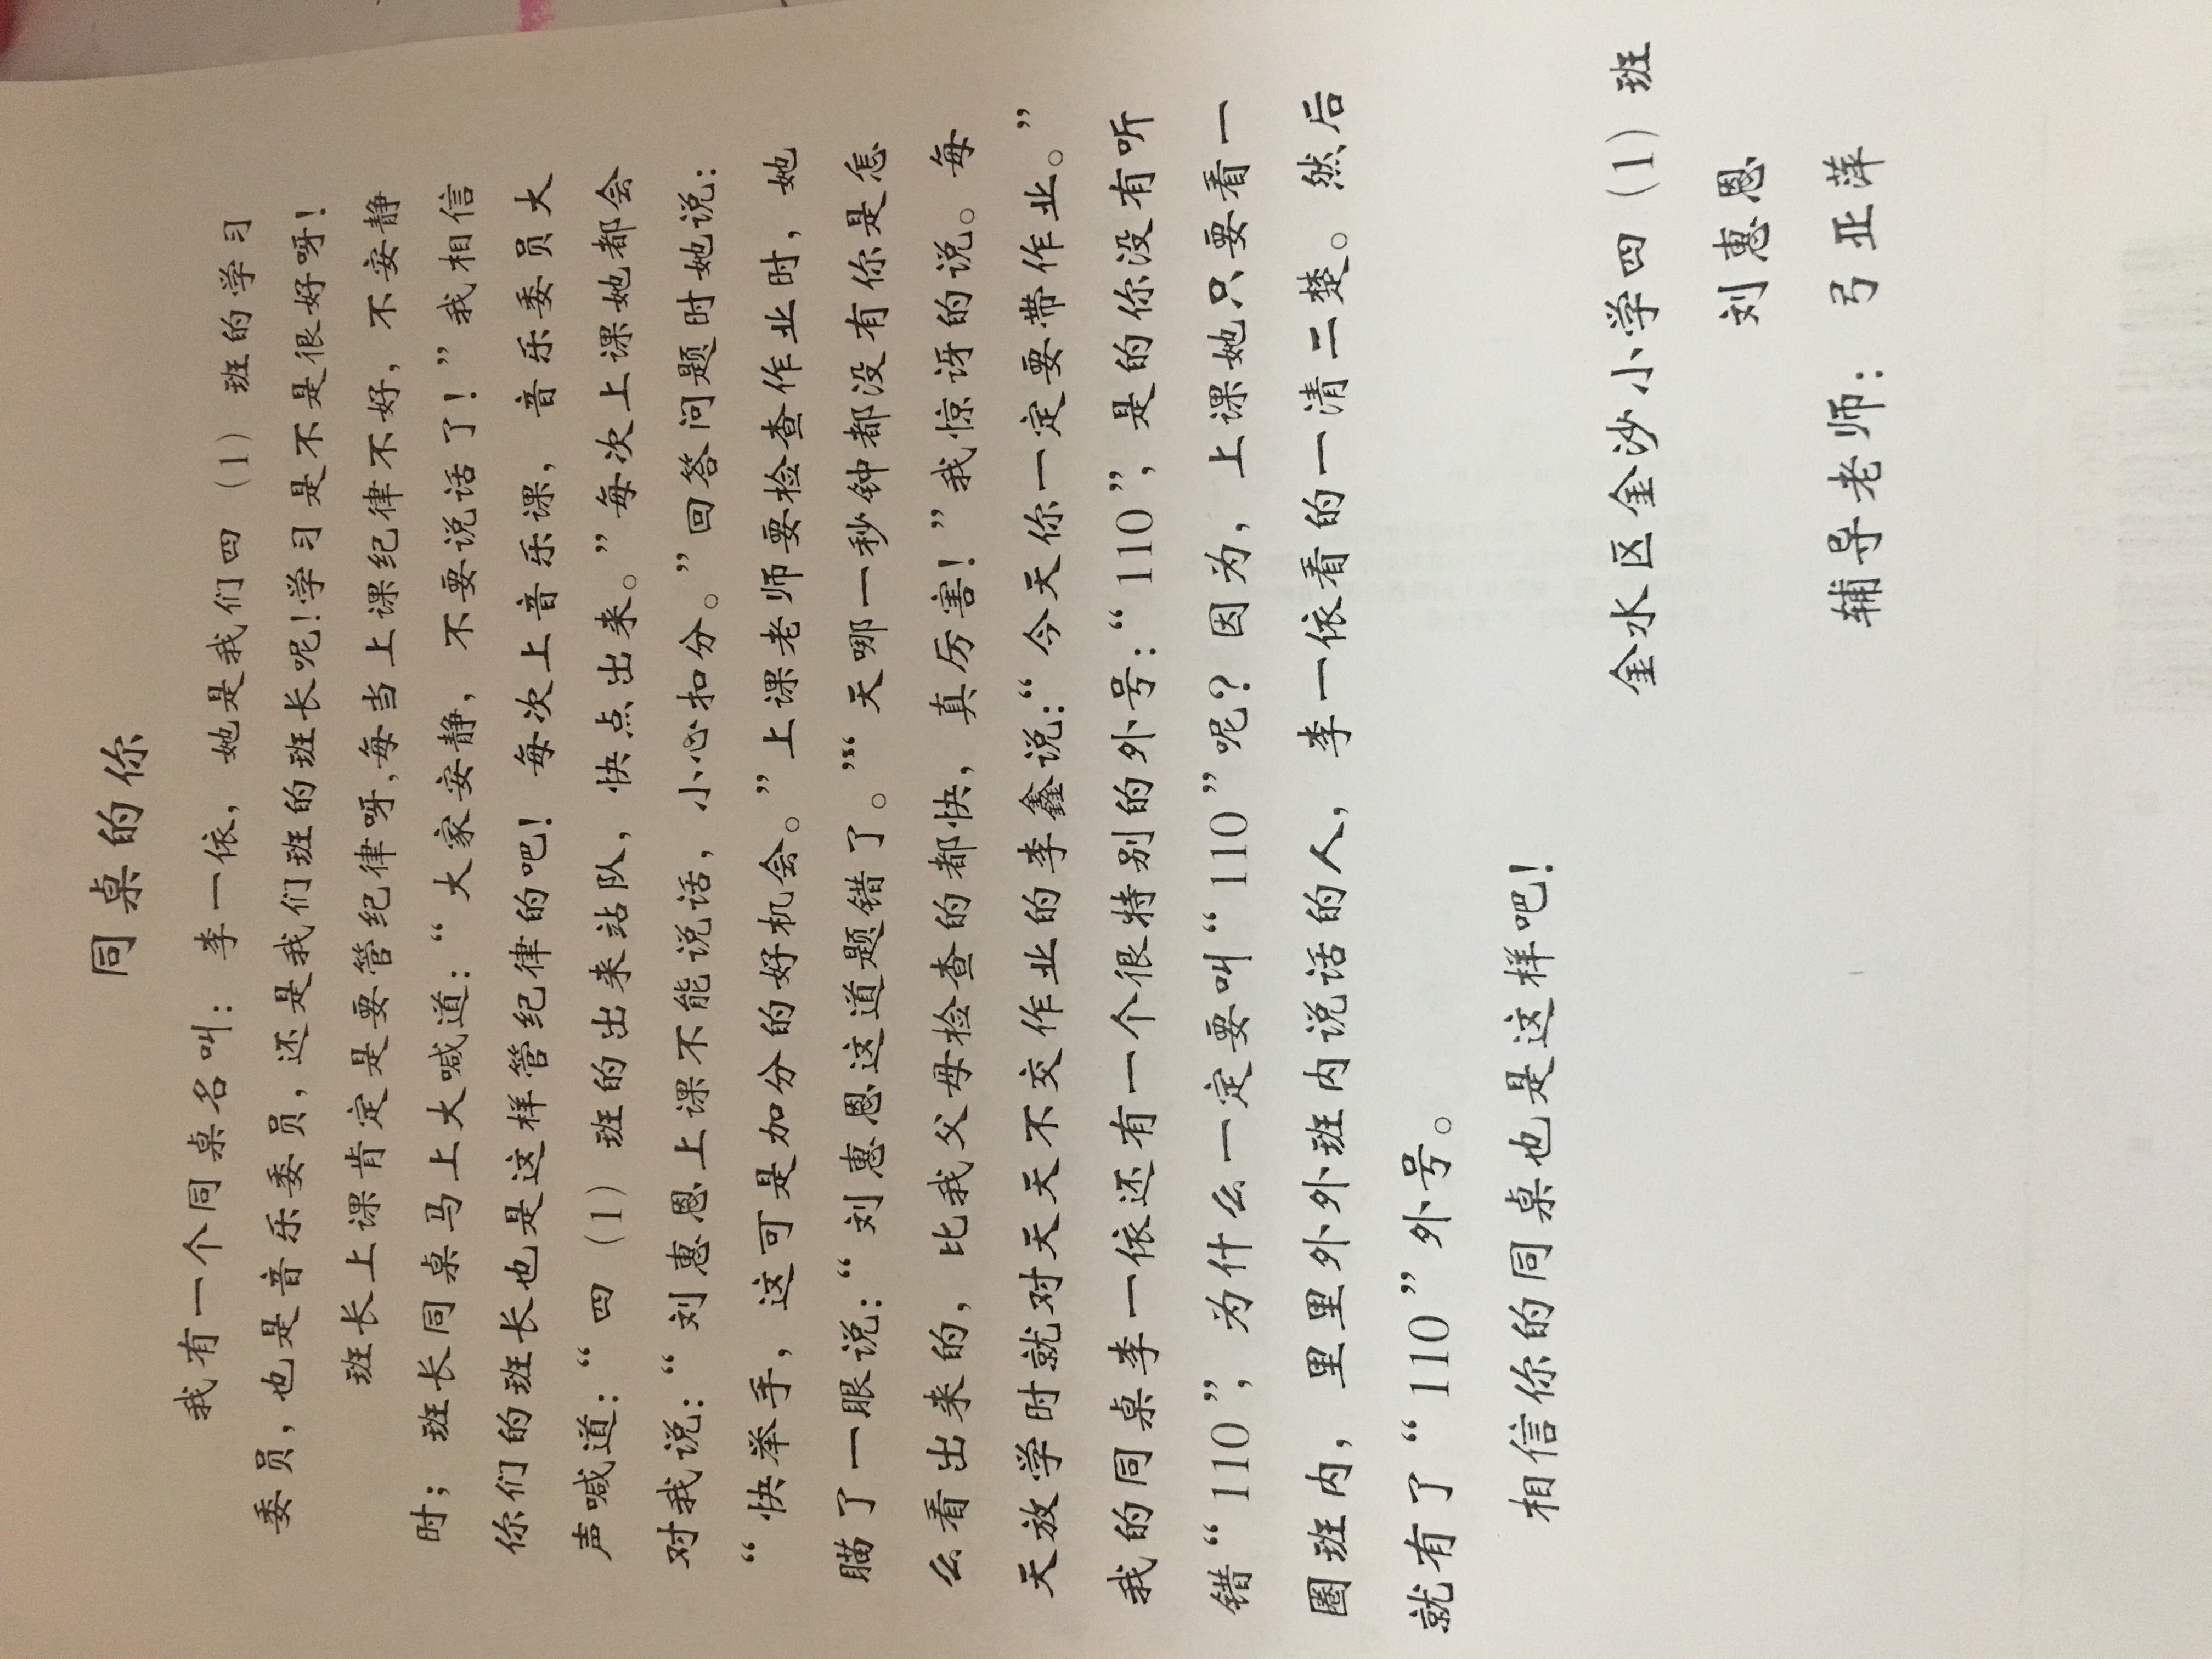 同桌的你
我有一个同桌名叫：李一依，她是我们四（1）班的学习
委员，也是音乐委员，还是我们班的班长呢！学习是不是很好呀！
班长上课肯定是要管纪律呀，每当上课纪律不好，不安静
时；班长同桌马上大喊道：“大家安静，不要说话了！”我相信
你们的班长也是这样管纪律的吧！每次上音乐课，音乐委员大
声喊道：“四（1）班的出来站队，快点出来。”每次上课她都会
对我说：“刘惠恩上课不能说话，小心扣分。”回答问题时她说：
“快举手，这可是加分的好机会。”上课老师要检查作业时，她
瞄了一眼说：“刘惠恩这道题错了。”“天哪一秒钟都没有你是怎
么看出来的，比我父母检查的都快，真厉害！”我惊讶的说。每
天放学时就对天天不交作业的李鑫说：“今天你一定要带作业。”
我的同桌李一依还有一个很特别的外号：“110”，是的你没有听
错“110”，为什么一定要叫“110”呢？因为，上课她只要看一
圈班内，里里外外班内说话的人，李一依看的一清二楚。然后
就有了“110”外号。
相信你的同桌也是这样吧！
金水区金沙小学四（1）班
刘惠恩
辅导老师：弓亚萍